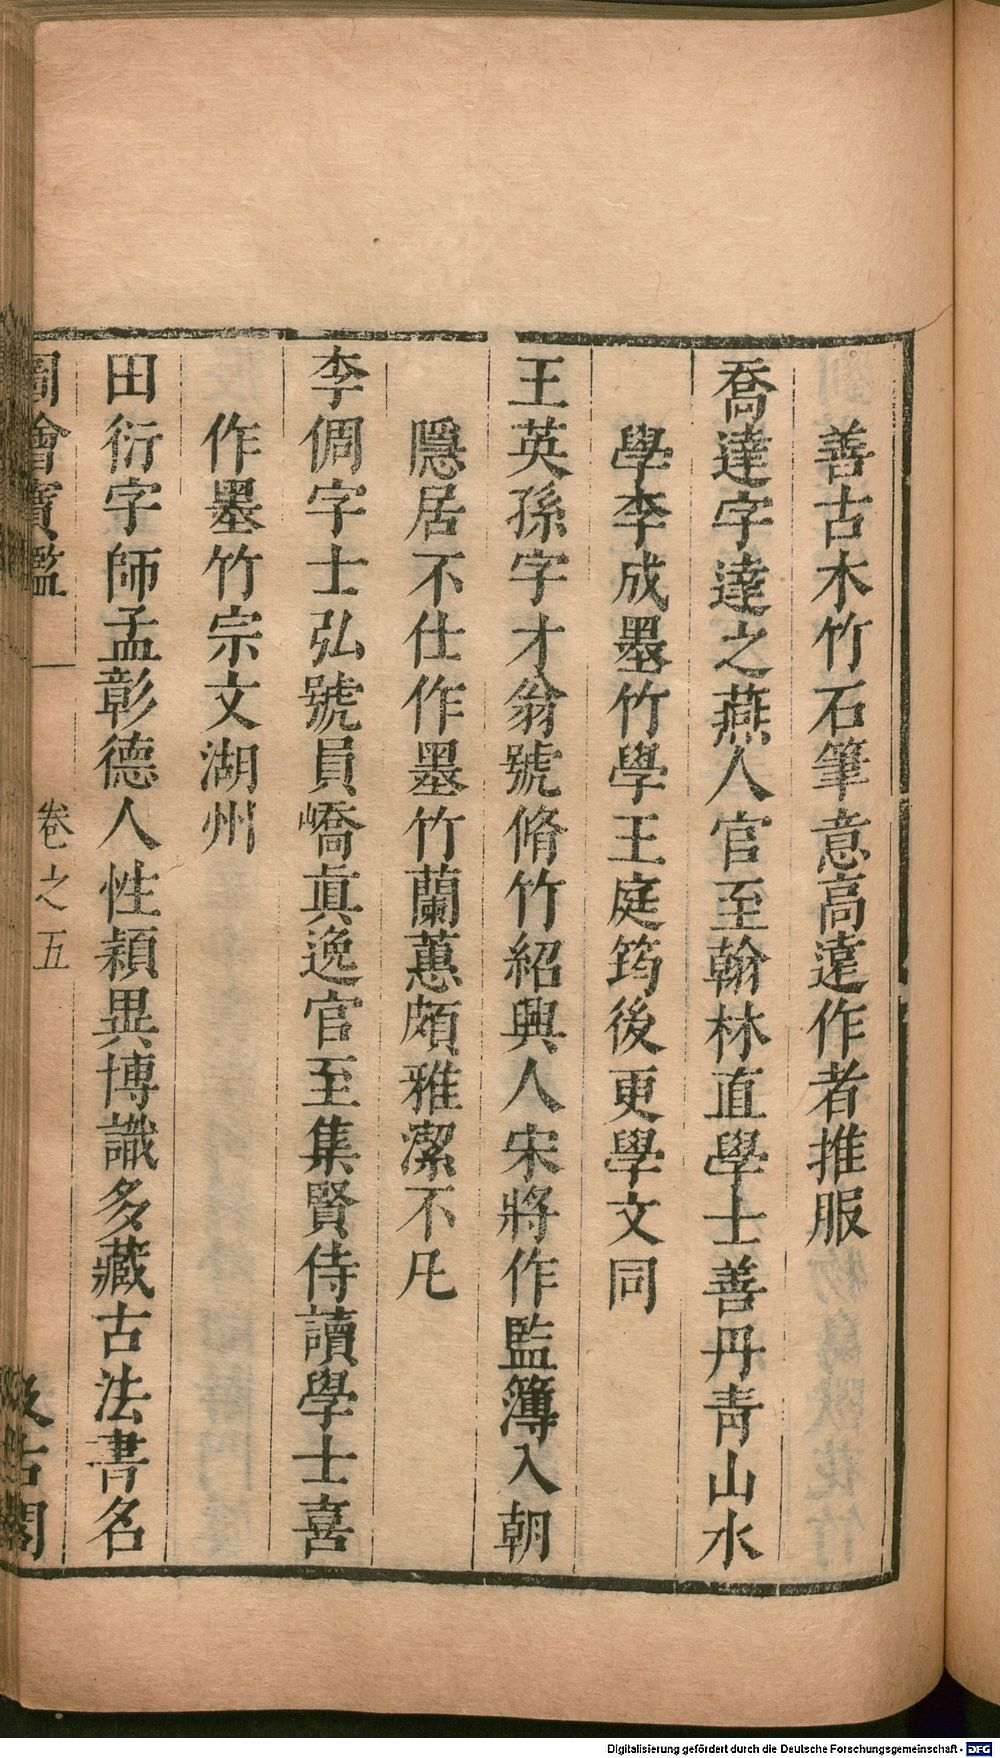 善古木竹石筆意高遠作者推服
喬達字達之燕人官至翰林直學士善丹青山水
學李成墨竹學王庭筠後更學文同
王英孫字才翁號脩竹紹興人宋將作監簿入朝
隱居不仕作墨竹蘭蕙頗雅潔不凡
李倜字士弘號員嶠眞逸官至集賢侍讀學士喜
作墨竹宗文湖州
田衍字師孟彰德人性穎異博識多藏古法書名
圖繪寶鑑 卷之五 汲古閣
Digitalisierung gefördert durch die Deutsche Forschungsgemeinschaft - DFG